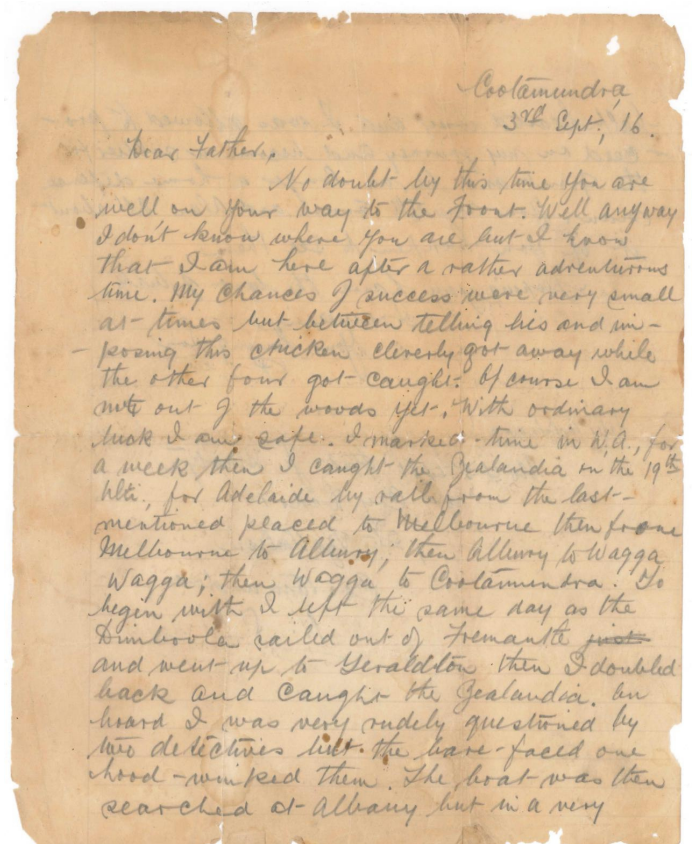 Cootamundra
3rd Sept., 16.
Dear Father,
No doubt by this time you are
well on your way to the Front. Well anyway
I don't know where you are but I know
that I am here after a rather adventurous
time. My chances of success were very small
at times but between telling lies and im-
posing this chicken cleverly got away while
the other four got caught. Of course I am
not out of the woods yet. With ordinary
luck I am safe. I marked time in W.A., for
a week then I caught the Zealandia on the 19th
Ulti., for Adelaide by rail from the last-
mentioned placed to Melbourne then from
Melbourne to Albury; then Albury to Wagga
Wagga; then Wagga to Cootamundra. To
begin with I left the same day as the
Dimboola sailed out of Fremantle just
and went up to Geraldton then I doubled
back and caught the Zealandia. On
board I was very rudely questioned by
two detectives but the bare-faced one
hood-winked them. The boat was then
searched at Albany but in a very